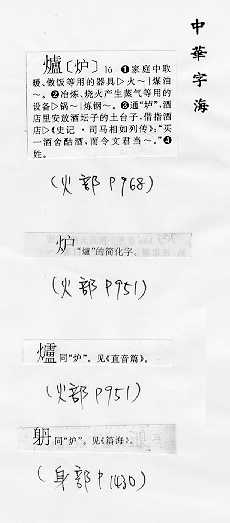 中華字海
爐〔炉〕16 ❶家庭中取
暖、做饭等用的器具▷火～|煤油
～。❷冶炼、烧火产生蒸气等用的
设备▷锅～|炼钢～。❸通“垆”,酒
店里安放酒坛子的土台子,借指酒
店▷《史记·司马相如列传》:“买
一酒舍酤酒,而令文君当～。”❹
姓。
(火部 P968)
炉 “爐”的简化字。
(火部 P951)
同“炉”。见《直音篇》。
(火部 P951)
同“炉”。见《篇海》。
(身部 P1430)